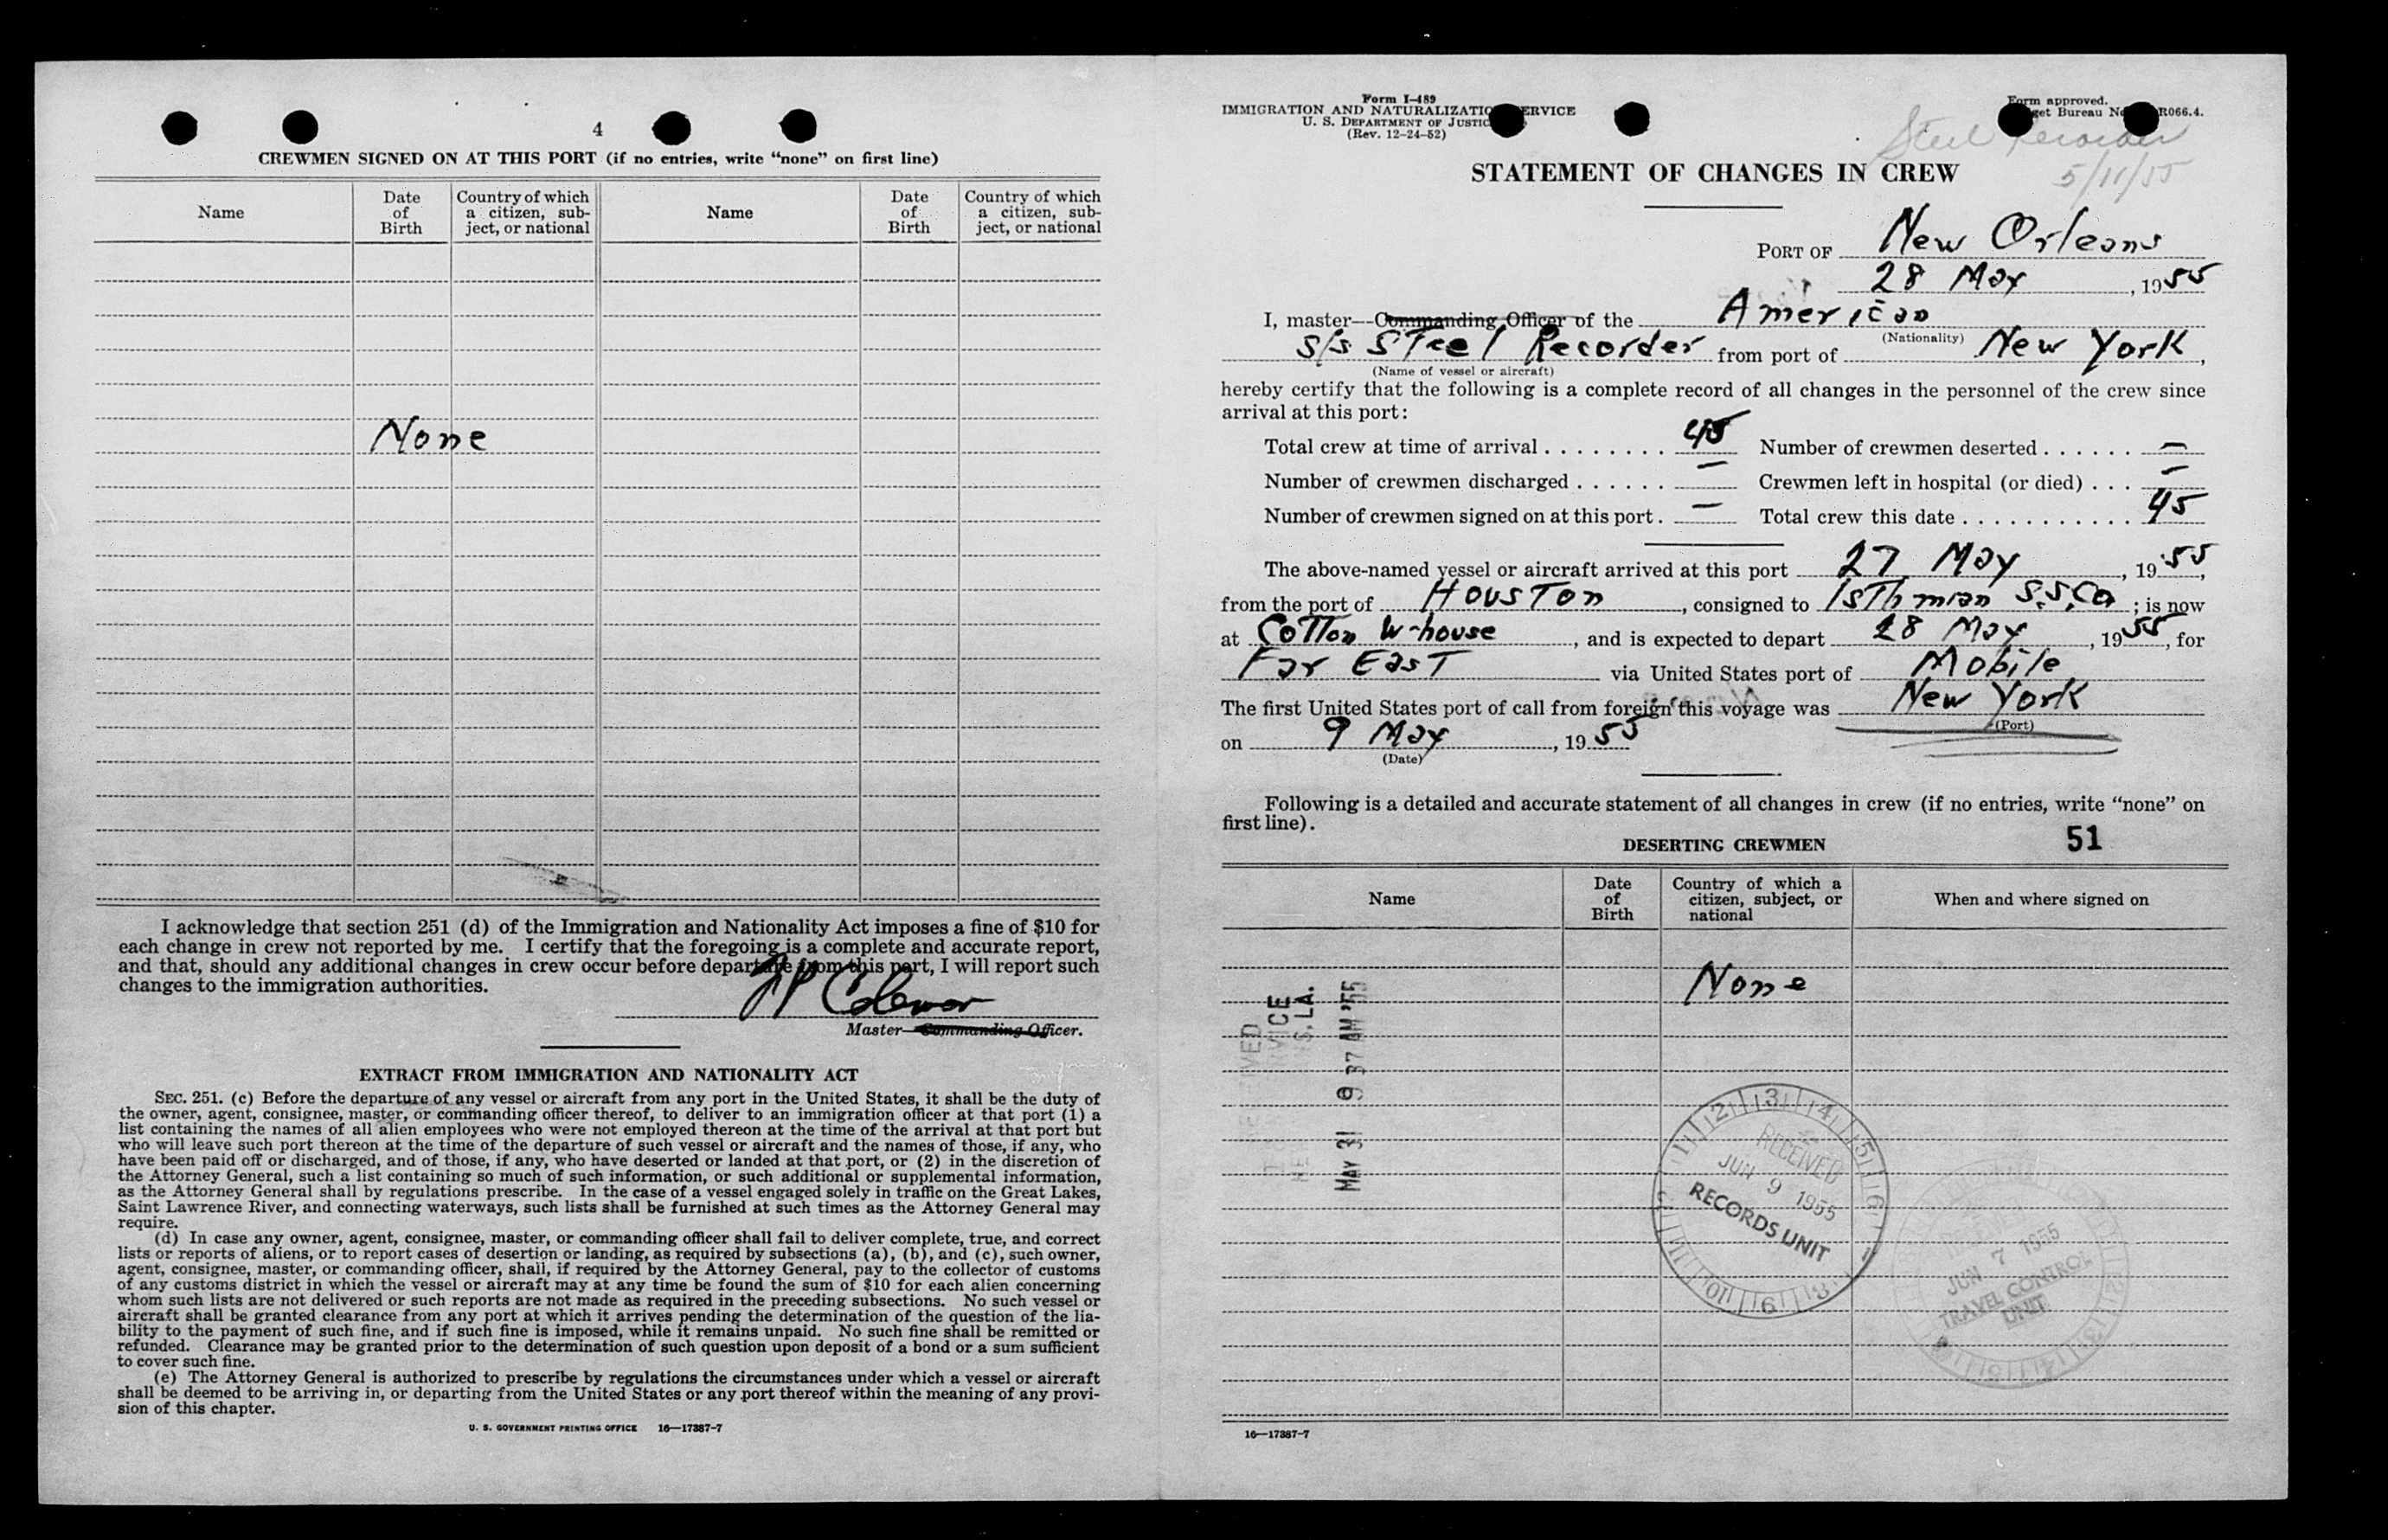 4
CREWMEN SIGNED ON AT THIS PORT (if no entries, write “none” on first line)
Name
Date of Birth
Country of which a citizen, sub-
ject, or national
Name
Date of Birth
Country of which a citizen, sub-
ject, or national
None
I acknowledge that section 251 (d) of the Immigration and Nationality Act imposes a fine of $10 for
each change in crew not reported by me. I certify that the foregoing is a complete and accurate report,
and that, should any additional changes in crew occur before departure from this port, I will report such
changes to the immigration authorities.
Master—Commanding Officer.
EXTRACT FROM IMMIGRATION AND NATIONALITY ACT
SEC. 251. (c) Before the departure of any vessel or aircraft from any port in the United States, it shall be the duty of
the owner, agent, consignee, master, or commanding officer thereof, to deliver to an immigration officer at that port (1) a
list containing the names of all alien employees who were not employed thereon at the time of the arrival at that port but
who will leave such port thereon at the time of the departure of such vessel or aircraft and the names of those, if any, who
have been paid off or discharged, and of those, if any, who have deserted or landed at that port, or (2) in the discretion of
the Attorney General, such a list containing so much of such information, or such additional or supplemental information,
as the Attorney General shall by regulations prescribe. In the case of a vessel engaged solely in traffic on the Great Lakes,
Saint Lawrence River, and connecting waterways, such lists shall be furnished at such times as the Attorney General may
require.
(d) In case any owner, agent, consignee, master, or commanding officer shall fail to deliver complete, true, and correct
lists or reports of aliens, or to report cases of desertion or landing, as required by subsections (a), (b), and (c), such owner,
agent, consignee, master, or commanding officer, shall, if required by the Attorney General, pay to the collector of customs
of any customs district in which the vessel or aircraft may at any time be found the sum of $10 for each alien concerning
whom such lists are not delivered or such reports are not made as required in the preceding subsections. No such vessel or
aircraft shall be granted clearance from any port at which it arrives pending the determination of the question of the lia-
bility to the payment of such fine, and if such fine is imposed, while it remains unpaid. No such fine shall be remitted or
refunded. Clearance may be granted prior to the determination of such question upon deposit of a bond or a sum sufficient
to cover such fine.
(e) The Attorney General is authorized to prescribe by regulations the circumstances under which a vessel or aircraft
shall be deemed to be arriving in, or departing from the United States or any port thereof within the meaning of any provi-
sion of this chapter.
U. S. GOVERNMENT PRINTING OFFICE 16—17387-7
Form I-489
IMMIGRATION AND NATURALIZATIO ERVICE
U. S. DEPARTMENT OF JUSTIC
(Rev. 12-24-52)
Form approved.
get Bureau No R066.4.
Steel Recorder
5/11/55
STATEMENT OF CHANGES IN CREW
PORT OF New Orleans
28 May, 1955
I, master—Commanding Officer of the American
(Nationality)
S/S STeel Recorder from port of New York,
(Name of vessel or aircraft)
hereby certify that the following is a complete record of all changes in the personnel of the crew since
arrival at this port:
Total crew at time of arrival 45 Number of crewmen deserted —
Number of crewmen discharged — Crewmen left in hospital (or died) —
Number of crewmen signed on at this port — Total crew this date 45
The above-named vessel or aircraft arrived at this port 27 May, 1955,
from the port of HousTon, consigned to IsThmian S.S.Co; is now
at CoTTon W-house, and is expected to depart 28 May, 1955, for
Far EasT via United States port of Mobile
The first United States port of call from foreign this voyage was New York
(Port)
on 9 May, 1955
(Date)
Following is a detailed and accurate statement of all changes in crew (if no entries, write “none” on
first line).
DESERTING CREWMEN
51
Name
Date of Birth
Country of which a citizen, subject, or national
When and where signed on
None
MAY 31 9 37 AM '55
RECEIVED
JUN 9 1955
RECORDS UNIT
JUN 7 1955
TRAVEL CONTROL
UNIT
16—17387-7